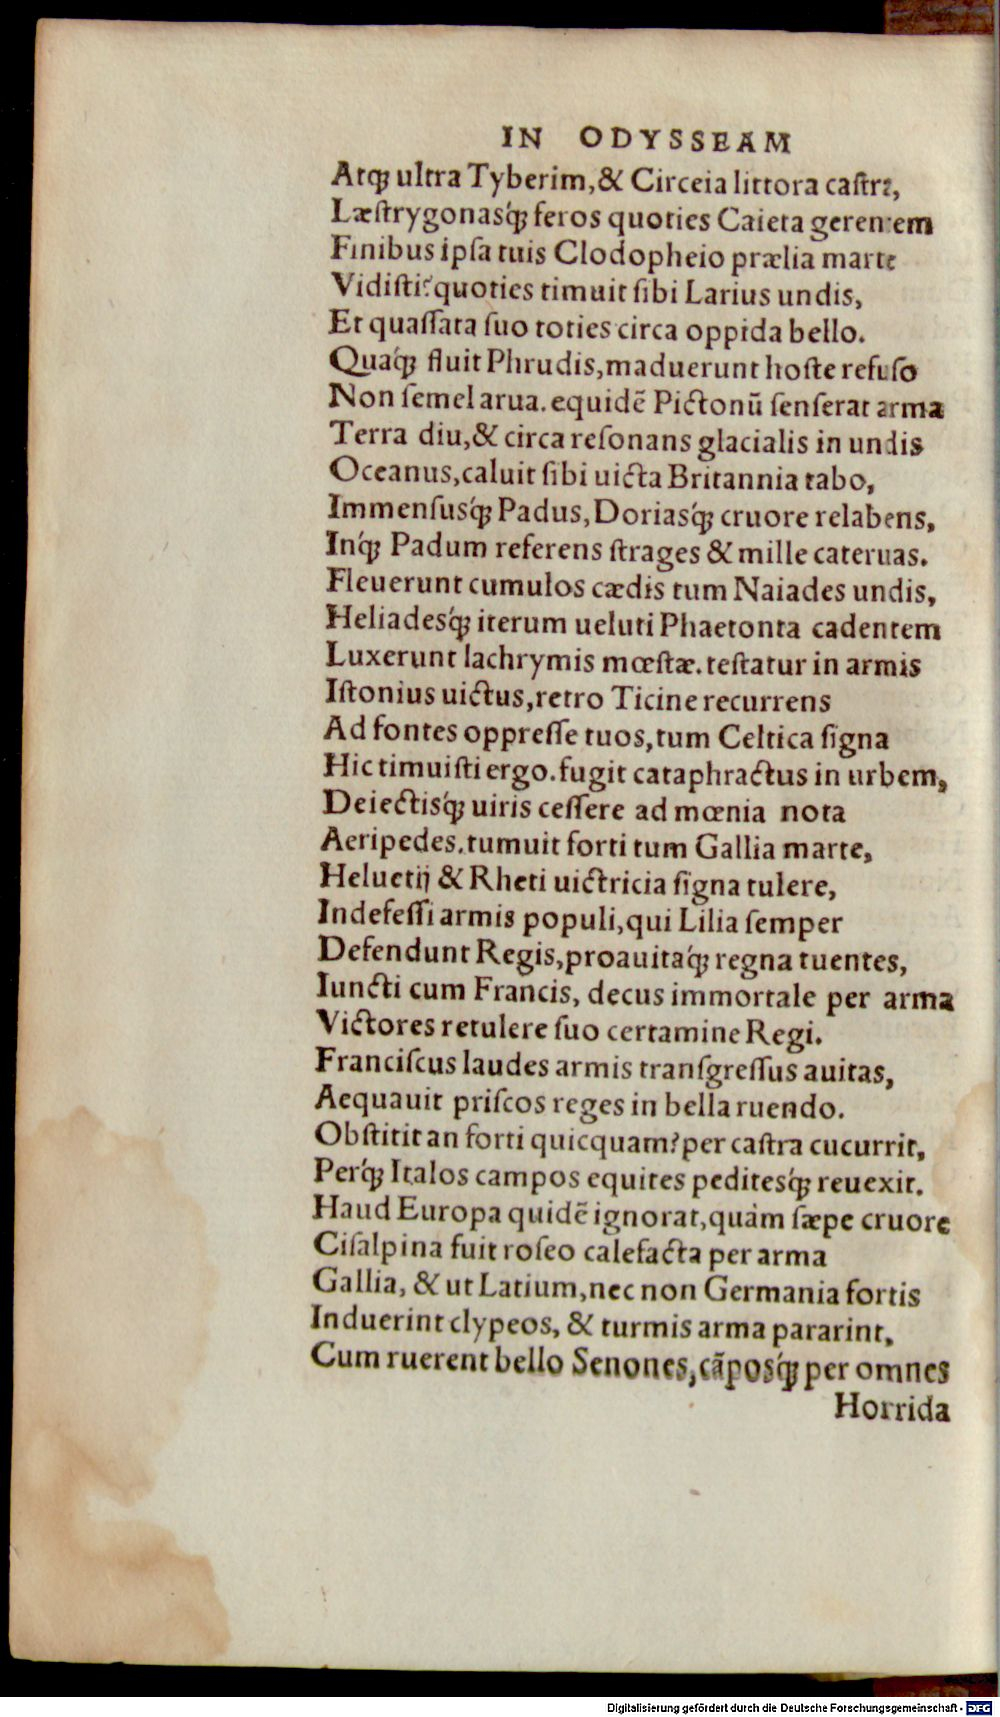 IN ODYSSEAM
Atqꝫ ultra Tyberim,& Circeia littora castra,
Læstrygonasq́ꝫ feros quoties Caieta gerentem
Finibus ipsa tuis Clodopheio prælia marte
Vidisti? quoties timuit sibi Larius undis,
Et quassata suo toties circa oppida bello.
Quaq́ꝫ fluit Phrudis, maduerunt hoste refuso
Non semel arua. equidē Pictonū senserat arma
Terra diu,& circa resonans glacialis in undis
Oceanus, caluit sibi uicta Britannia tabo,
Immensusq́ꝫ Padus, Doriasq́ꝫ cruore relabens,
Inq́ꝫ Padum referens strages & mille cateruas.
Fleuerunt cumulos cædis tum Naiades undis,
Heliadesq́ꝫ iterum ueluti Phaetonta cadentem
Luxerunt lachrymis mœstæ. testatur in armis
Istonius uictus, retro Ticine recurrens
Ad fontes oppresse tuos, tum Celtica signa
Hic timuisti ergo. fugit cataphractus in urbem,
Deiectisq́ꝫ uiris cessere ad mœnia nota
Aeripedes. tumuit forti tum Gallia marte,
Heluetij & Rheti uictricia signa tulere,
Indefessi armis populi, qui Lilia semper
Defendunt Regis, proauitaq́ꝫ regna tuentes,
Iuncti cum Francis, decus immortale per arma
Victores retulere suo certamine Regi.
Franciscus laudes armis transgressus auitas,
Aequauit priscos reges in bella ruendo.
Obstitit an forti quicquam? per castra cucurrit,
Perq́ꝫ Italos campos equites peditesq́ꝫ reuexit.
Haud Europa quidē ignorat, quàm sæpe cruore
Cisalpina fuit roseo calefacta per arma
Gallia, & ut Latium, nec non Germania fortis
Induerint clypeos, & turmis arma pararint,
Cum ruerent bello Senones, cāposq́ꝫ per omnes
Horrida
Digitalisierung gefördert durch die Deutsche Forschungsgemeinschaft - DFG